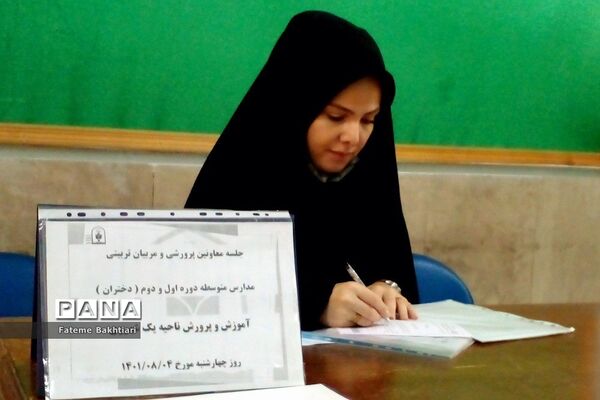 جلسه معاونین پرورشی و مربیان تربیتی
مدارس متوسطه دوره اول و دوم ( دختران )
آموزش و پرورش ناحیه یک
روز چهارشنبه مورخ ۱۴۰۱/۰۸/۰۴
PANA
Fateme Bakhtiari